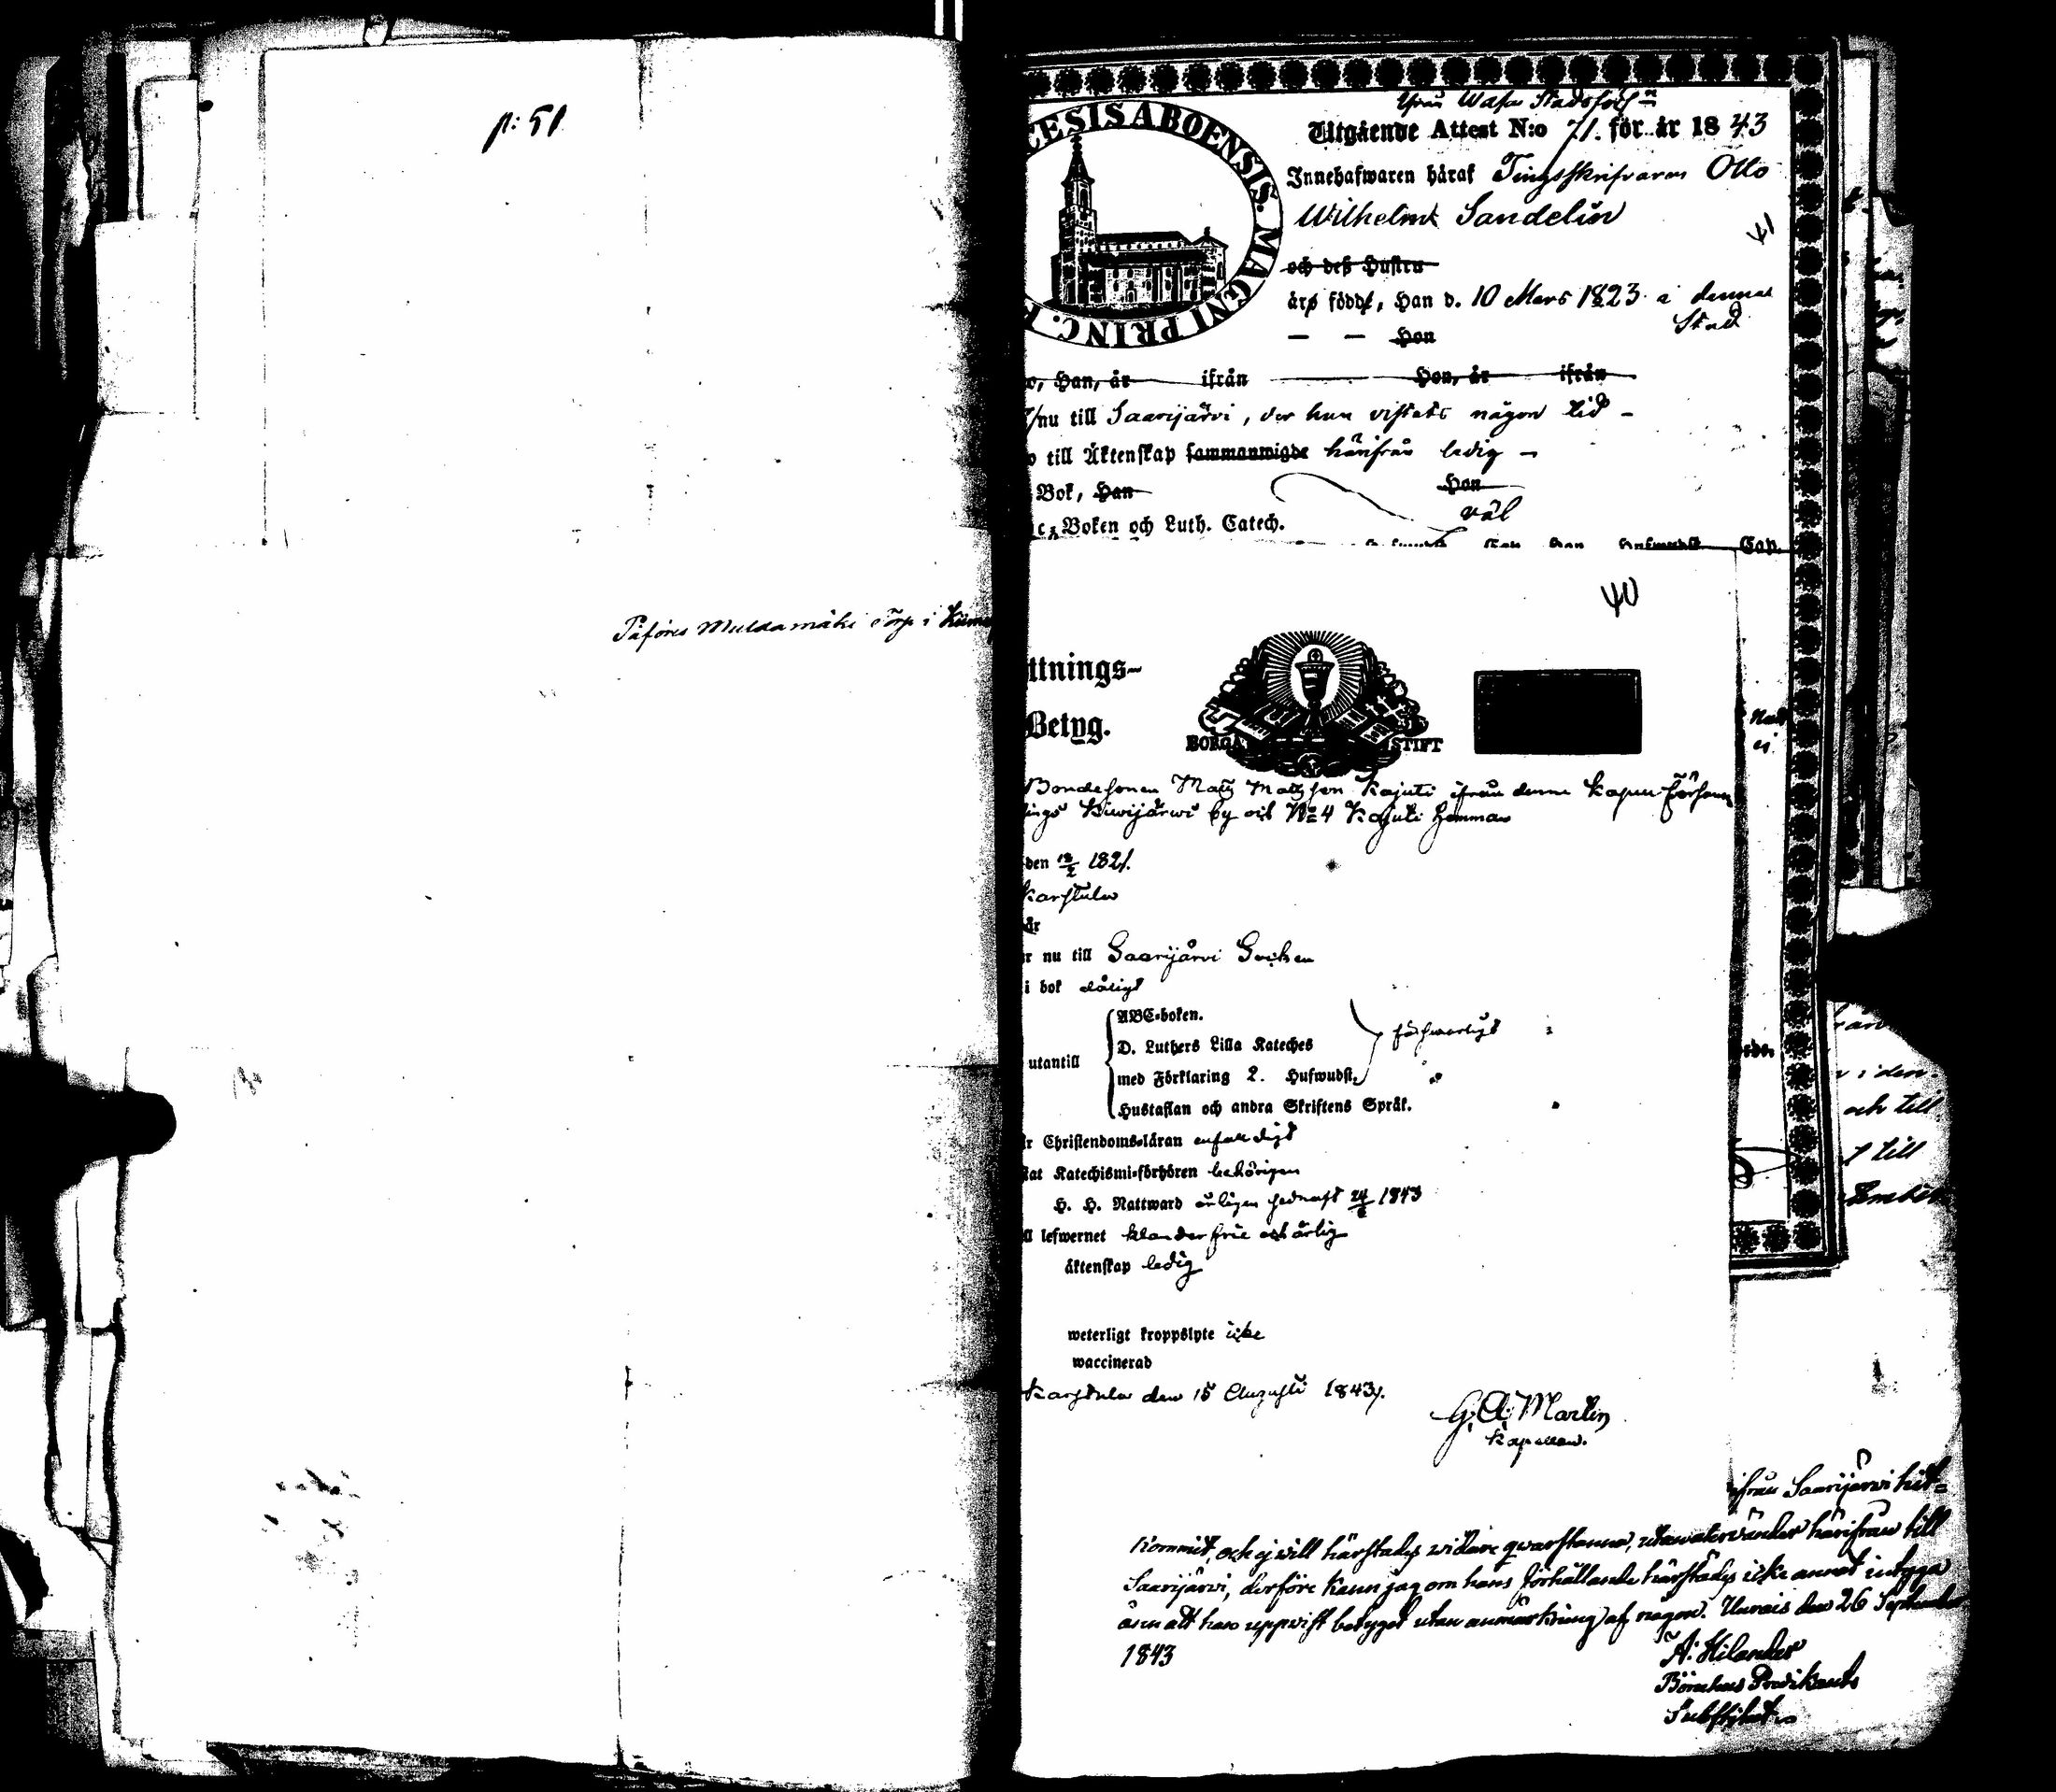 p: 51
Påföres Muldamäki Torp i
från Wasa Stadsförs:n
Utgående Attest N:o 71. för år 1843
Innehafwaren häraf Tingsskrifvaren Otto
Wilhelm Sandelin
41
och deß Hustru
äro födde, Han d. 10 Mars 1823 i denna
Stad
— — Hon
o, Han, är ifrån Hon, är ifrån
nu till Saarijärvi, der han vistats någon tid –
till Äktenskap sammanwigde härifrån ledig –
Bok, Han Hon
väl
c-Boken och Luth. Catech.
Cap.
CESIS ABOENSIS. MAGNI PRINC. F
40
ttnings-
Betyg.
BORGÅ STIFT
Bondesonen Matz Matzson Kajuti ifrån denne Kapell Församl
ings Kiwijärwi by och N:o 4 Kajuti hemman
den 12/2 1821.
Karstula
är
r nu till Saarijärvi Socken
i bok dåligt
utantill
ABC-boken.
D. Luthers Lilla Kateches
med Förklaring 2. Hufwudst.
försvarligt
Hustaflan och andra Skriftens Språk.
r Christendoms-läran enfaldigt
kat Katechismi-förhören behörigen
H. H. Nattward årligen sednast 24/ 1843
ll lefwernet klanderfrie och ärlig
äktenskap ledig
weterligt kroppslyte icke
waccinerad
Karstula den 15 Augusti 1843.
G. A. Martin
Kapellan.
och till
till
ifrån Saarijärvi hit-
kommit, och ej will härstädes widare qwarstanna, utan återvänder härifrån till
Saarijärvi, derföre kan jag om hans förhållande härstädes icke annat intyga
än att han uppvist betyget utan anmärkning af någon. Uurais den 26 September
1843
A: Hilander
Bönehus Predikants
Substitut